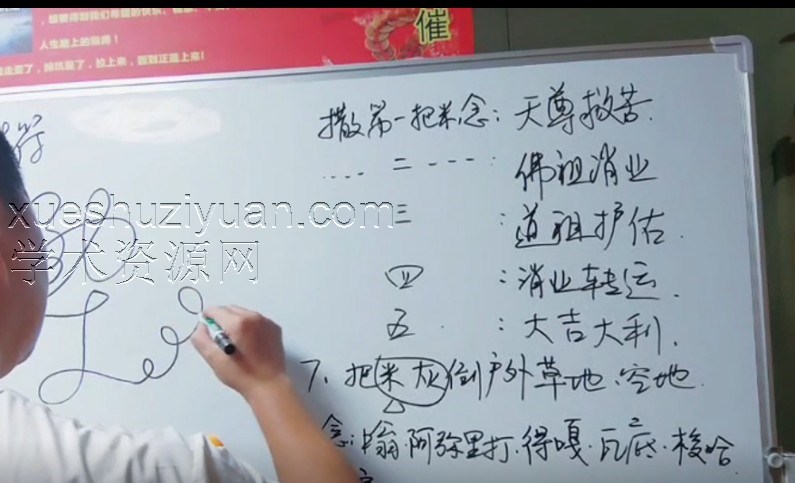 催
人生路上的指隽!
撒第一把米念:天尊救苦.
.... 二 ---- : 佛祖消业
三 : 道祖护佑.
四 : 消业转运.
五. : 大吉大利.
7、把米灰倒户外草地、空地.
念:嗡·阿弥里打·得嘎·瓦底·梭哈
符
xueshuziyuan.com
学术资源网